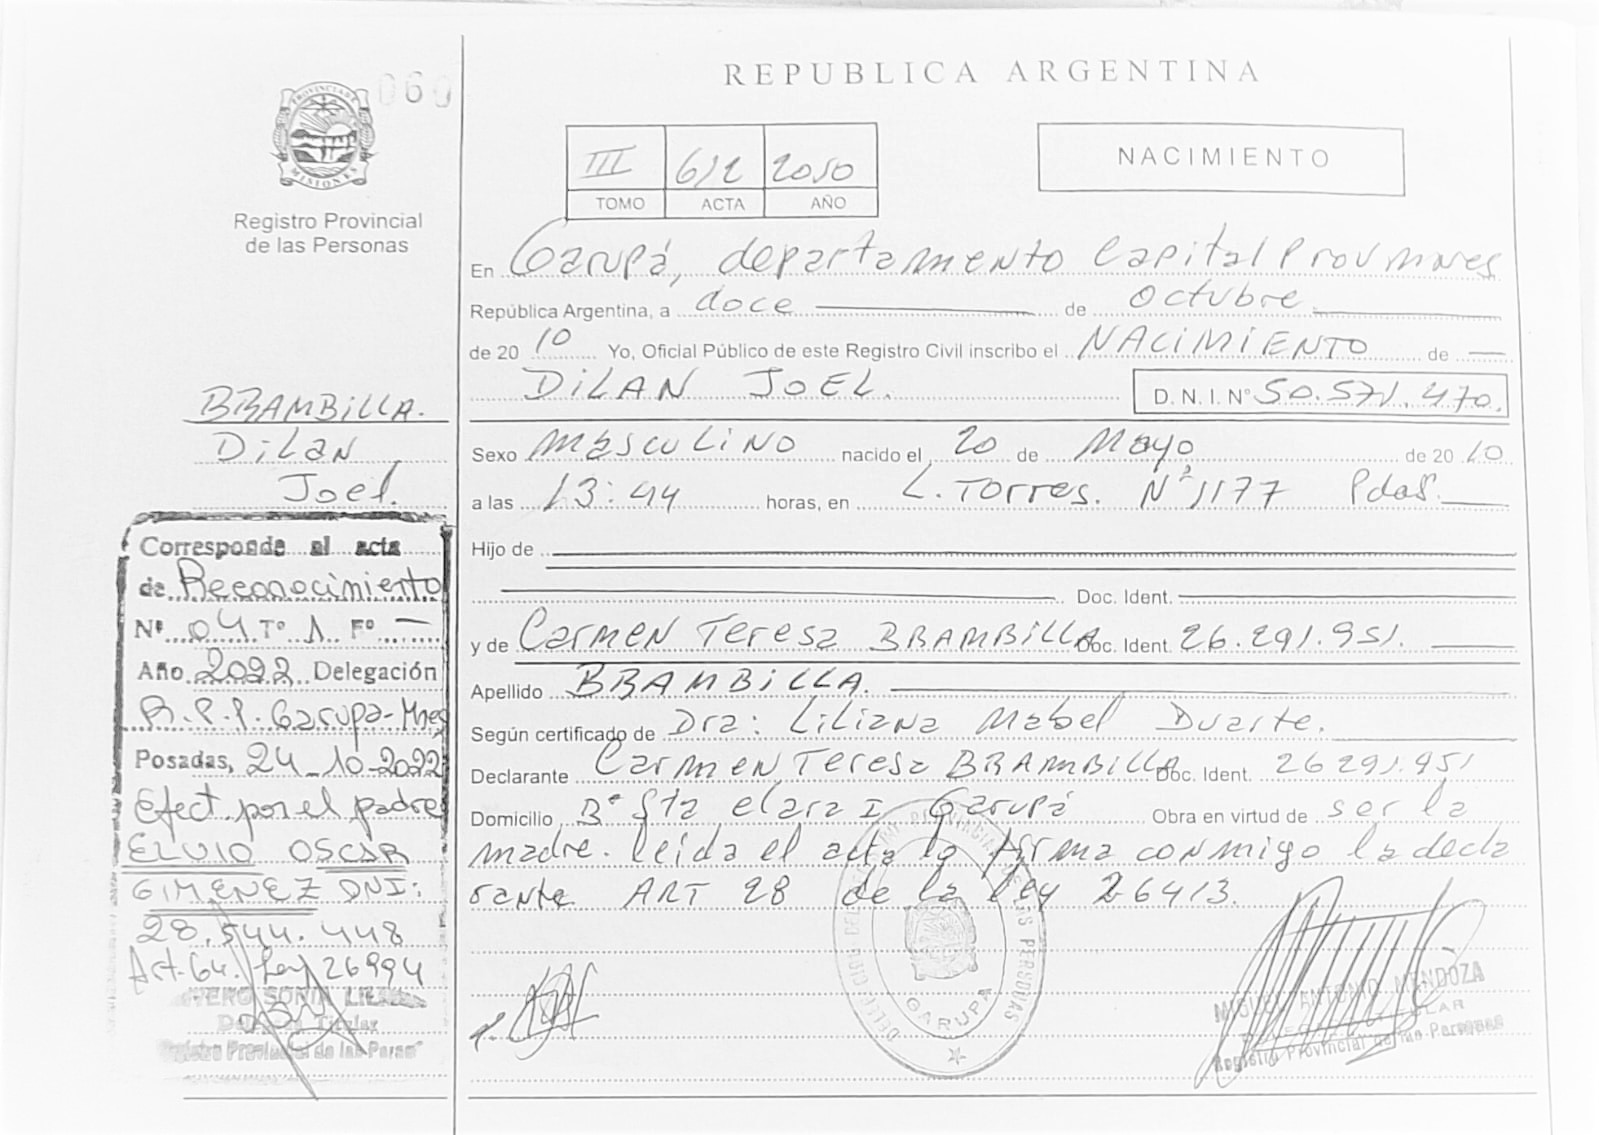 060
PROVINCIA DE
MISIONES
Registro Provincial
de las Personas
BRAMBILLA.
DiLaN
Joel.
Corresponde al acta
de Reconocimiento
Nº 04 Tº 1 Fº —
Año 2022 Delegación
R.P.P. Garupa-Mnes
Posadas, 24-10-2022
Efect. por el padre
ELVIO OSCAR
GIMENEZ DNI:
28.544.448
Art. 64. Ley 26994
SONIA
Titular
Registro Provincial de las Personas
REPUBLICA ARGENTINA
III 612 2010
TOMO ACTA AÑO
NACIMIENTO
En Garupá, departamento Capital Prov Mnes
República Argentina, a doce de Octubre
de 20 10 Yo, Oficial Público de este Registro Civil inscribo el NACIMIENTO de —
DiLAN JOEL. D. N. I. Nº 50.571.470.
Sexo MascuLiNo nacido el 20 de Mayo de 20 10
a las 13:44 horas, en L. Torres. Nº 1177 Pdas.
Hijo de
Doc. Ident.
y de Carmen Teresa BRAMBILLA Doc. Ident. 26.291.951.
Apellido BRAMBILLA.
Según certificado de Dra: Liliana Mabel Duarte.
Declarante Carmen Teresa BRAMBILLA Doc. Ident. 26291.951
Domicilio Bº Sta clara I Garupá Obra en virtud de ser la
madre. leída el acta la firma conmigo la decla
rante ART 28 de la ley 26413.
GARUPA
MIGUEL ANTONIO MENDOZA
Registro Provincial de las Personas